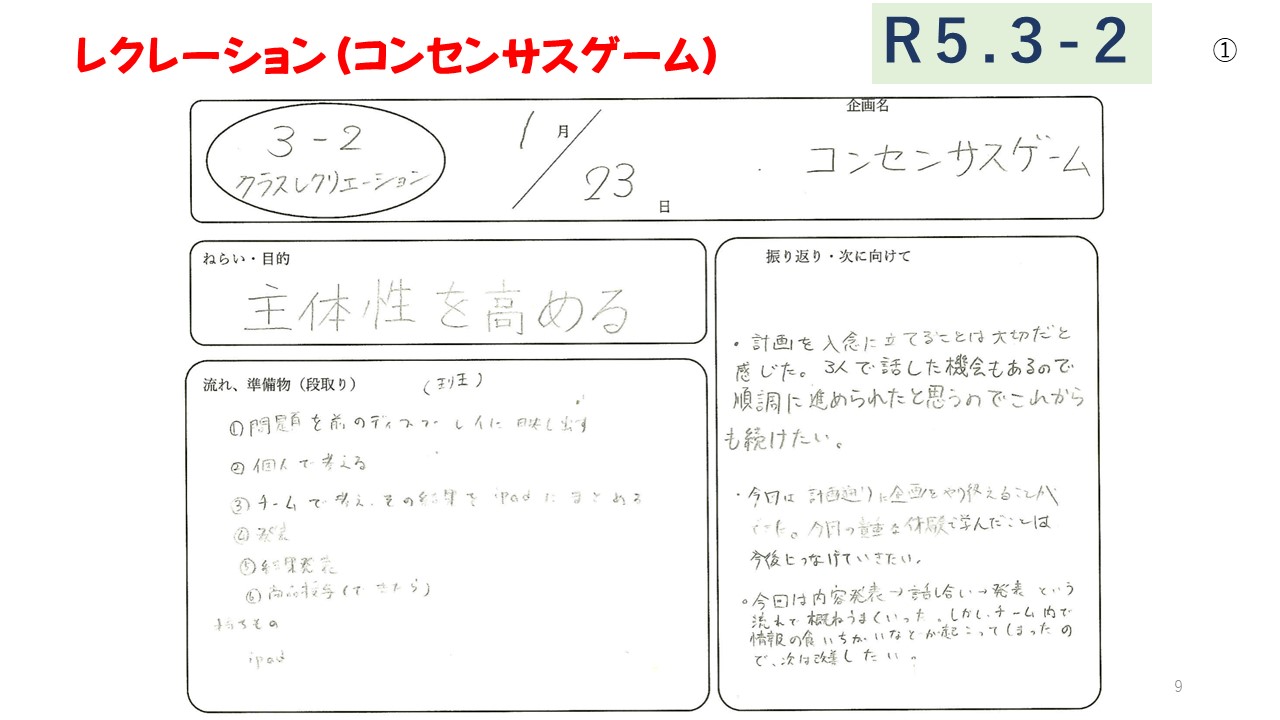 レクレーション(コンセンサスゲーム)
R5.3-2
①
3-2
クラスレクリエーション
1月/23日
企画名
コンセンサスゲーム
ねらい・目的
主体性を高める
流れ、準備物(段取り)
(班王)
①問題を前のディスプレイに映し出す
②個人で考える
③チームで考え、その結果をipadにまとめる
④発表
⑤結果発表
⑥商品授与(できたら)
持ちもの
ipad
振り返り・次に向けて
・計画を入念に立てることは大切だと
感じた。3人で話した機会もあるので
順調に進められたと思うのでこれから
も続けたい。
・今回は計画通りに企画をやり終えることが
できた。今回の貴重な体験で学んだことは
今後につなげていきたい。
・今回は内容発表→話し合い→発表という
流れで概ねうまくいった。しかし、チーム内で
情報の食いちがいなどが起こってしまったの
で、次は改善したい。
9